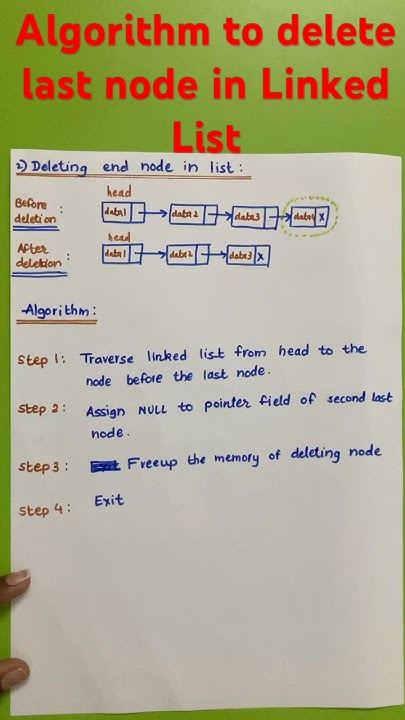 Algorithm to delete
last node in Linked
List
2) Deleting end node in list :
Before deletion :
head
data1 data2 data3 data4 X
After deletion :
head
data1 data2 data3 X
Algorithm :
Step 1 : Traverse linked list from head to the
node before the last node.
Step 2 : Assign NULL to pointer field of second last
node.
Step 3 : Freeup the memory of deleting node
Step 4 : Exit